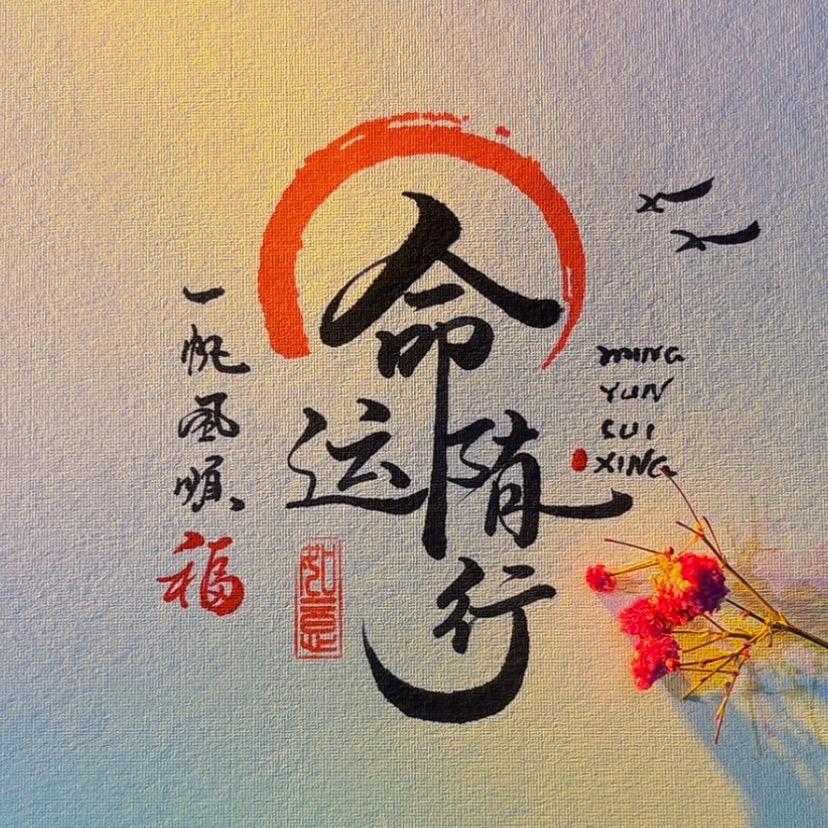 命
运随
行
一帆风顺
福
MING
YUN
SUI
XING